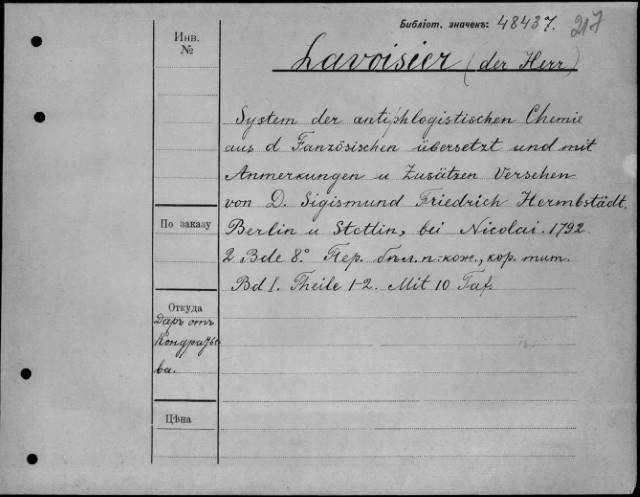 Библіот. значекъ: 48437. 217
Инв.
№
Lavoisier (der Herr)
System der antiphlogistischen Chemie
aus d Fanzösischen übersetzt und mit
Anmerkungen u Zusätzen Versehen
von D. Sigismund Friedrich Hermbstädt,
По заказу
Berlin u Stettin, bei Nicolai. 1792
2 Bde 8.° Пер. бѣл. п: кож., кор. тит.
Bd I. Theile 1-2. Mit 10 Taf.
Откуда
Даръ отъ
Кондратье
ва.
Цѣна